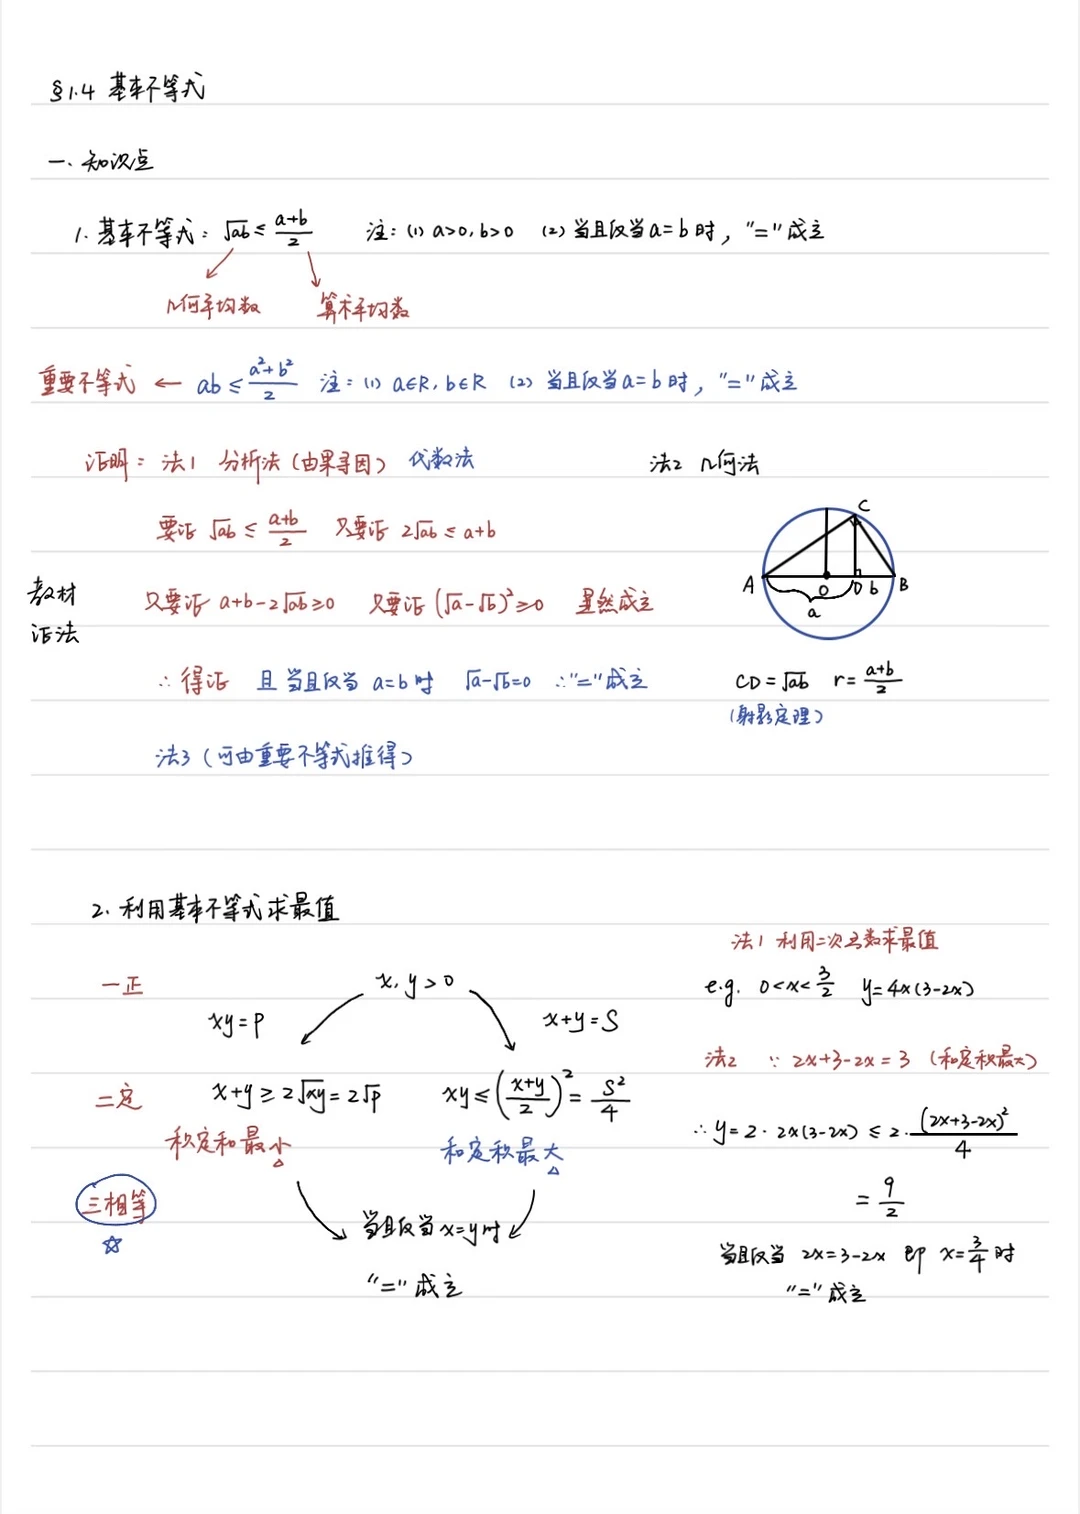 §1.4 基本不等式
一、知识点
1. 基本不等式：√ab ≤ (a+b)/2 注：(1) a>0, b>0 (2) 当且仅当a=b时，"="成立
几何平均数 算术平均数
重要不等式 ← ab ≤ (a²+b²)/2 注：(1) a∈R, b∈R (2) 当且仅当a=b时，"="成立
证明：法1 分析法（由果寻因） 代数法
要证 √ab ≤ (a+b)/2 只要证 2√ab ≤ a+b
教材
证法
只要证 a+b-2√ab ≥ 0 只要证 (√a-√b)² ≥ 0 显然成立
∴得证 且当且仅当 a=b时 √a-√b=0 ∴"="成立
法3（可由重要不等式推得）
法2 几何法
C
A O D b B
a
CD=√ab r=(a+b)/2
（射影定理）
2. 利用基本不等式求最值
一正
x, y>0
xy=P x+y=S
二定
x+y ≥ 2√xy = 2√P xy ≤ ((x+y)/2)² = S²/4
积定和最小 和定积最大
三相等
☆
当且仅当x=y时
"="成立
法1 利用二次函数求最值
e.g. 0<x<3/2 y=4x(3-2x)
法2 ∵ 2x+3-2x=3（和定积最大）
∴ y=2·2x(3-2x) ≤ 2·(2x+3-2x)²/4
=9/2
当且仅当 2x=3-2x 即 x=3/4时
"="成立